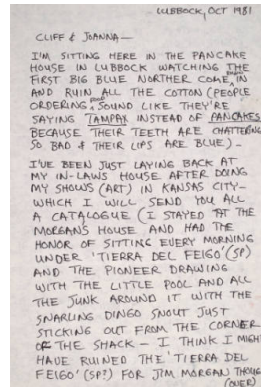 LUBBOCK, OCT 1981
CLIFF & JOANNA—
I'M SITTING HERE IN THE PANCAKE
HOUSE IN LUBBOCK WATCHING THE
FIRST BIG BLUE NORTHER COME IN
AND RUIN ALL THE COTTON (PEOPLE
ORDERING SOUND LIKE THEY'RE
SAYING TAMPAX INSTEAD OF PANCAKES
BECAUSE THEIR TEETH ARE CHATTERING
SO BAD & THEIR LIPS ARE BLUE) —
I'VE BEEN JUST LAYING BACK AT
MY IN-LAWS HOUSE AFTER DOING
MY SHOWS (ART) IN KANSAS CITY—
WHICH I WILL SEND YOU ALL
A CATALOGUE (I STAYED AT THE
MORGAN'S HOUSE AND HAD THE
HONOR OF SITTING EVERY MORNING
UNDER 'TIERRA DEL FEIGO' (SP)
AND THE PIONEER DRAWING
WITH THE LITTLE POOL AND ALL
THE JUNK AROUND IT WITH THE
SNARLING DINGO SNOUT JUST
STICKING OUT FROM THE CORNER
OF THE SHACK — I THINK I MIGHT
HAVE RUINED THE 'TIERRA DEL
FEIGO' (SP?) FOR JIM MORGAN THOUGH
(OVER)